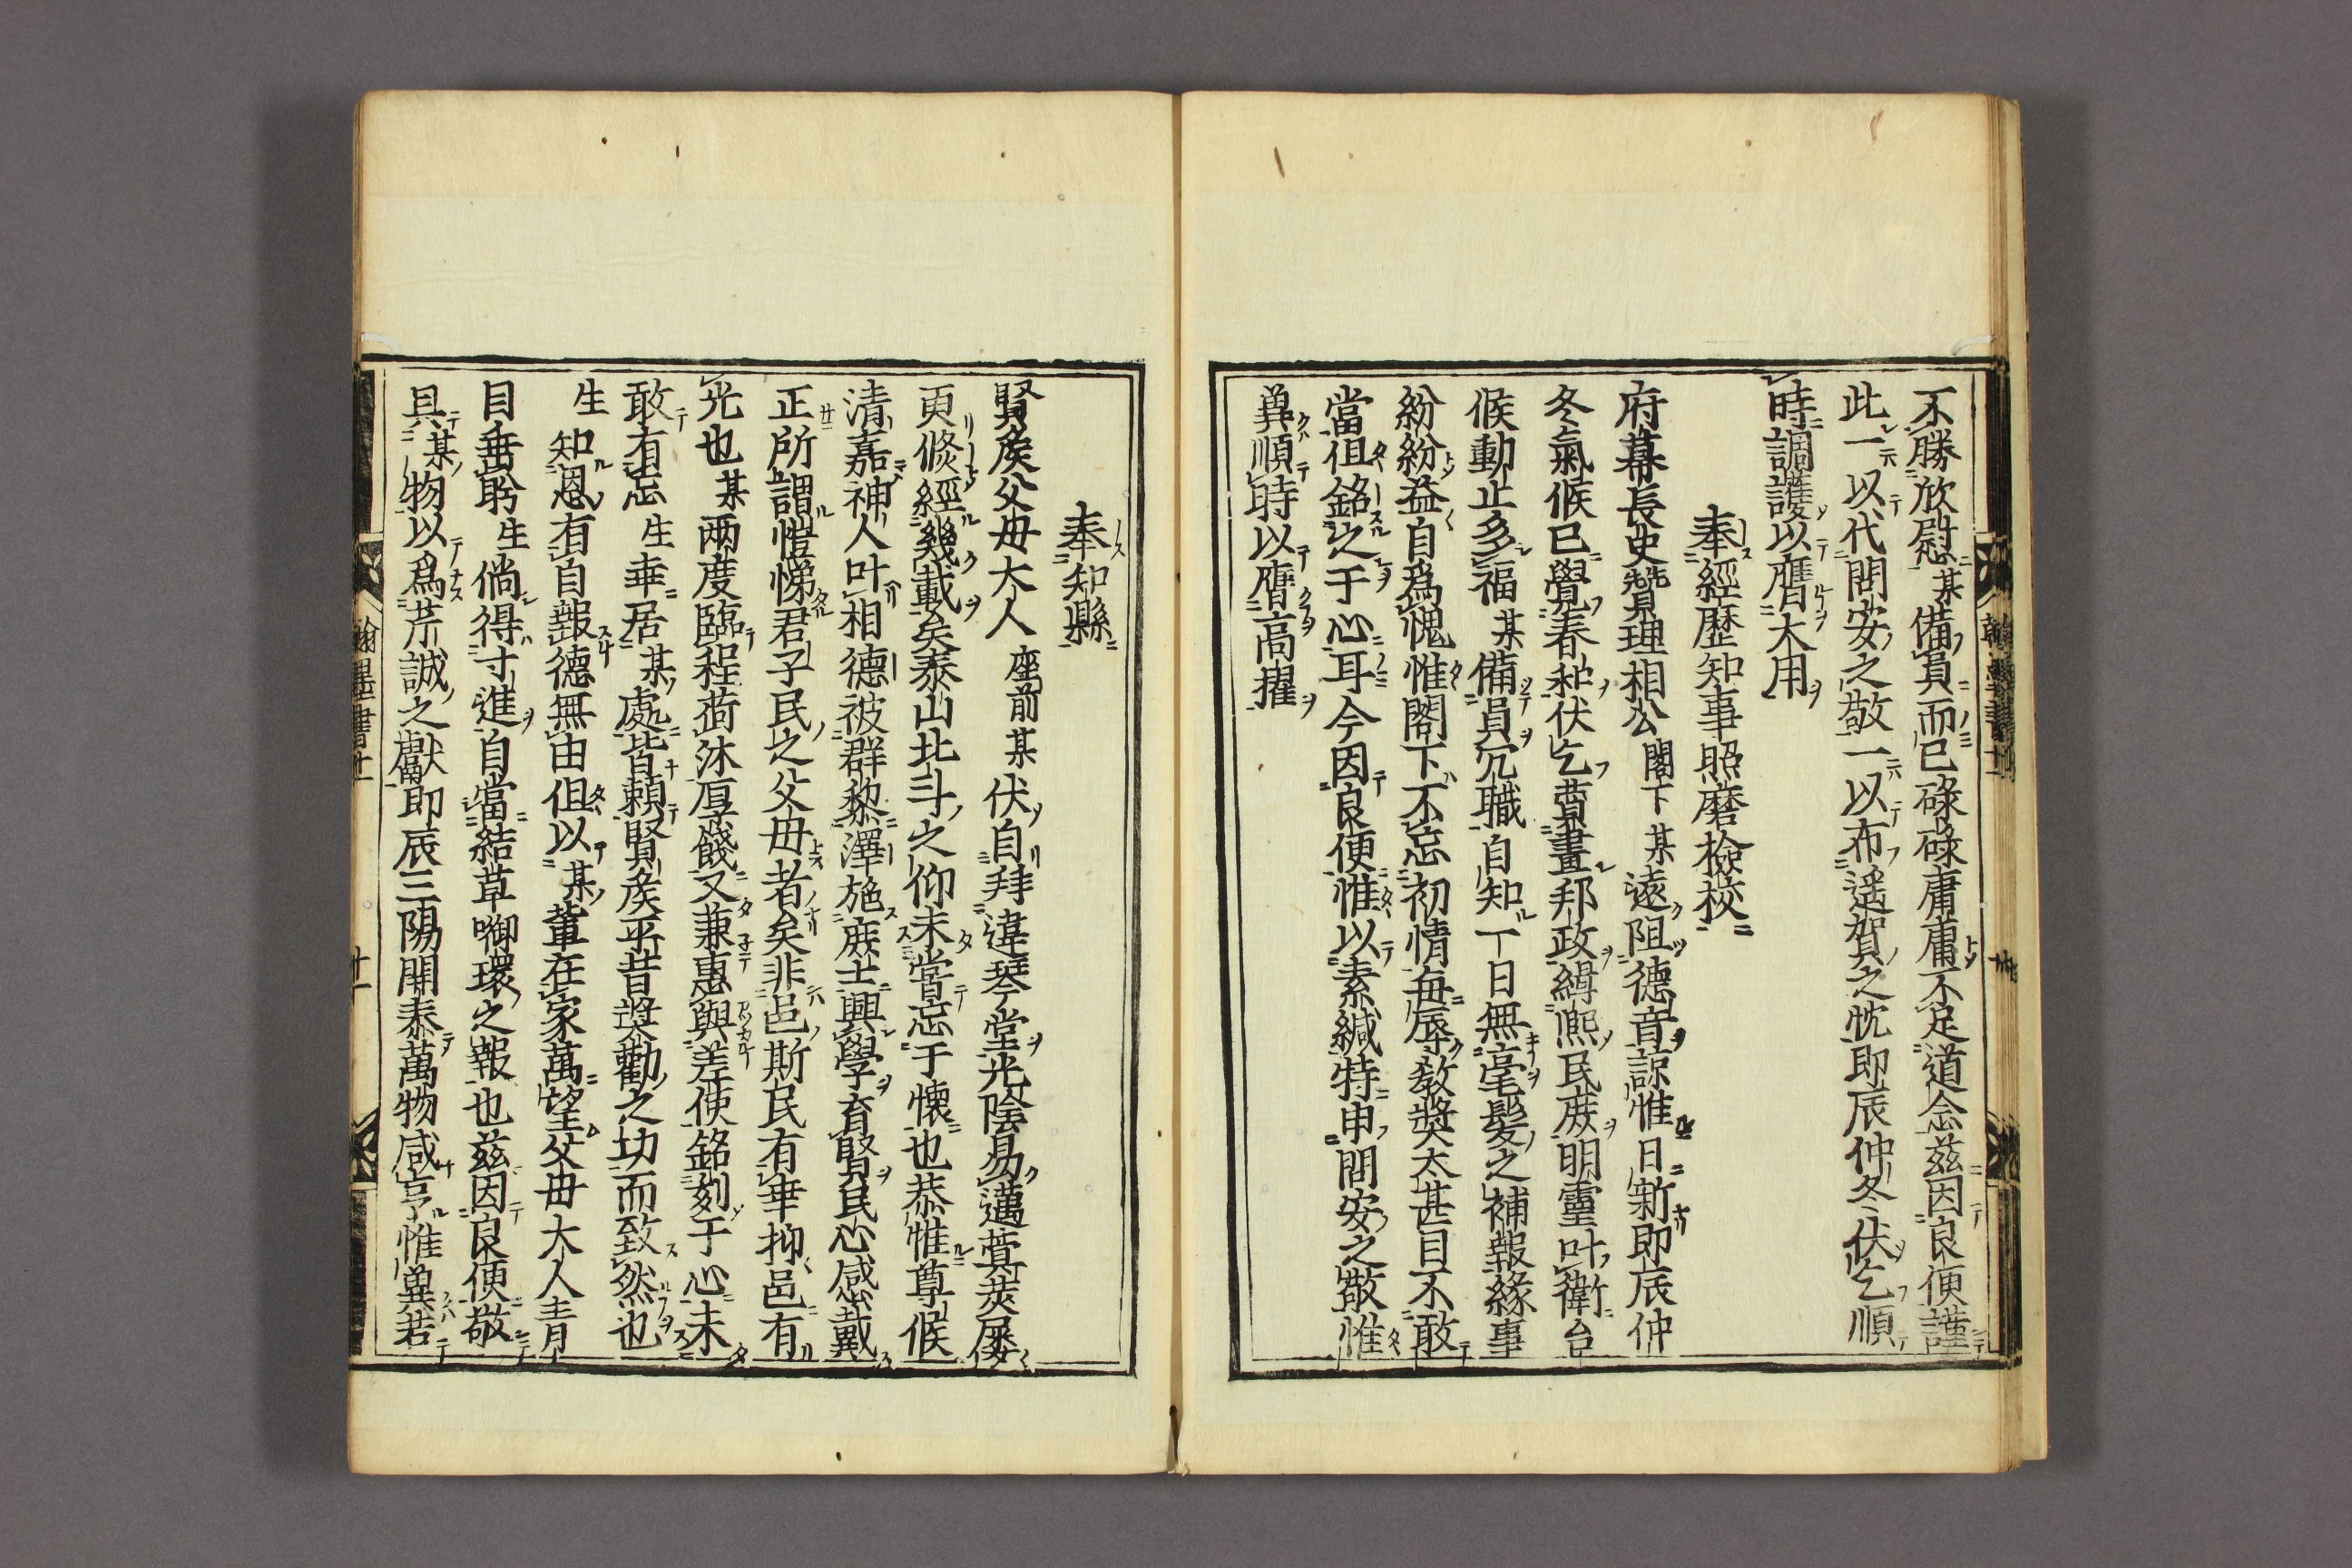 不勝欣慰某備員而已碌碌庸庸不足道念茲因良便謹
此一以代問安之敬一以布遥賀之忱即辰仲冬伏乞順
時調護以膺大用
奉經歷知事照磨撿校
府幕長史賛理相公閣下某遠阻德音諒惟日新即辰仲
冬氣候已覺春和伏乞賁畫邦政緝熈民庶明靈叶衛台
候動止多福某備員冗職自知丁日無毫髪之補報緣事
紛紛益自爲愧惟閣下不忘初情毎辱教奬太甚目不敢
當但銘之于心耳今因良便惟以素緘特申問安之敬惟
兾順時以膺高擢
奉知縣
賢矦父母大人座前某伏自拜違琴堂光陰易邁蓂莢屡
更倐經幾載矣泰山北斗之仰未嘗忘于懐也恭惟尊候
清嘉神人叶相德被群黎澤施庻士興學育賢民心感戴
正所謂愷悌君子民之父母者矣非邑斯民有幸抑邑有
光也某两度臨程荷沐厚餞又兼惠與差使銘刻于心未
敢有忘生幸居某處皆頼賢矦平昔奬勸之功而致然也
生知恩有自報德無由但以某輩在家萬望父母大人青
目垂盼生倘得寸進自當結草啣環之報也茲因良便敬
具某物以爲芹誠之獻即辰三陽開泰萬物咸亨惟兾若
翰墨書廿
廿一